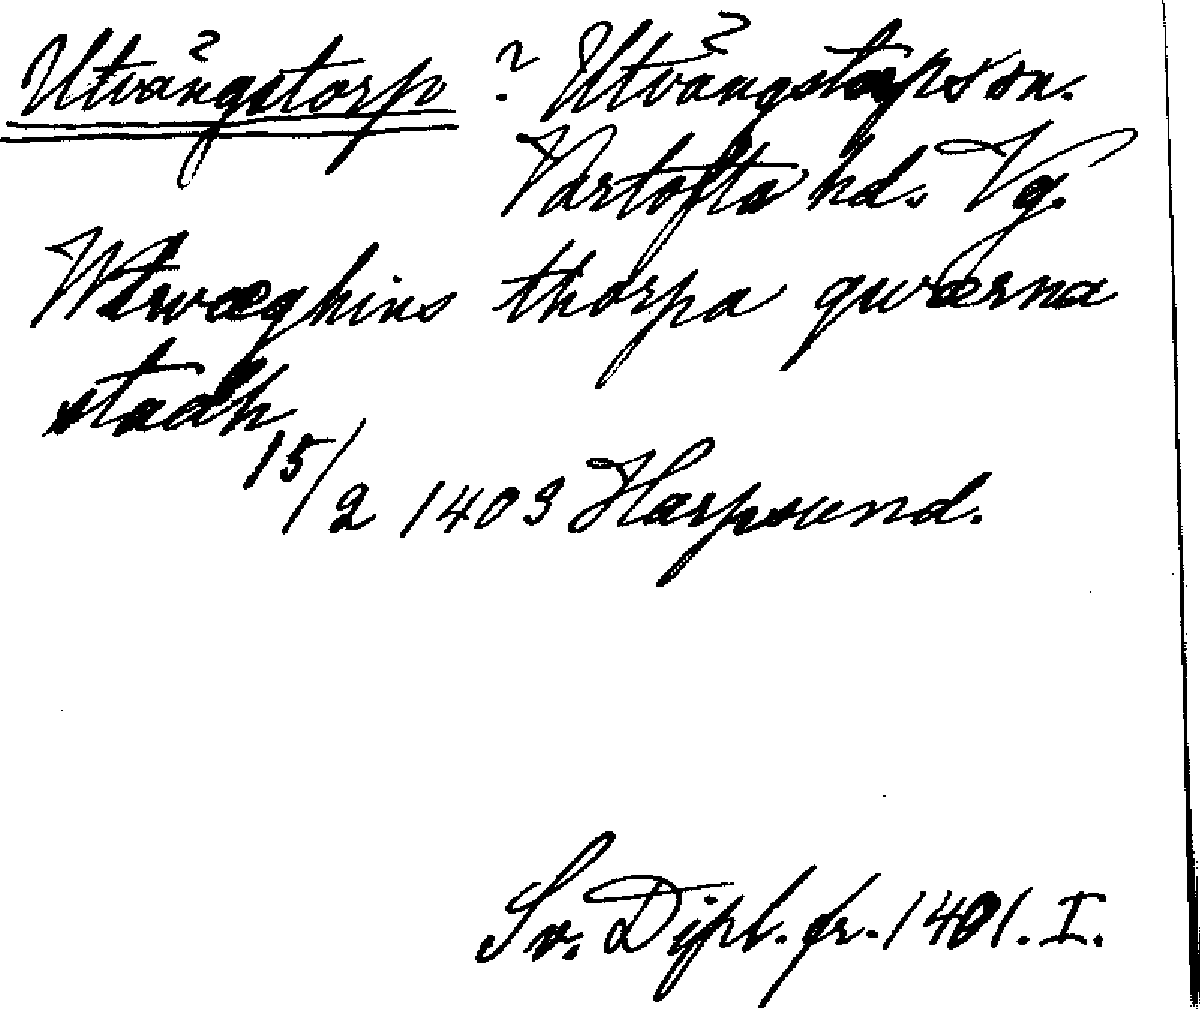 Utvångstorp ? Utvångstorps sn.
Vartofta hd. Vg.
Wtwæghins thorpa qwærna
stadh
15/2 1403 Harpsund.
Sv. Dipl. fr. 1401. I.